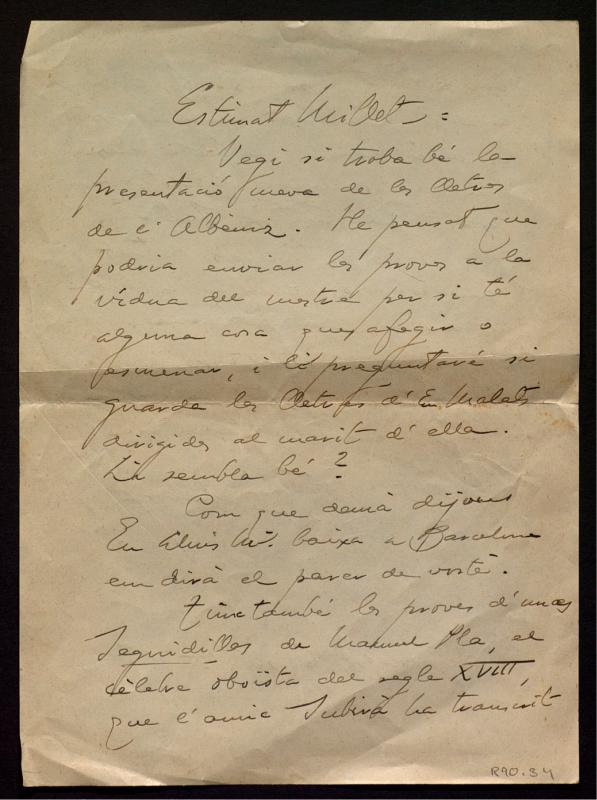 Estimat Millet:
Vegi si troba bé la
presentació meva de les lletres
de l'Albéniz. He pensat que
podria enviar les proves a la
vídua del mestre per si té
alguna cosa que afegir o
esmenar, i li preguntaré si
guarda les lletres d'En Malats
dirigides al marit d'ella.
Li sembla bé?
Com que demà dijous
En Lluís Mª. baixa a Barcelona
em dirà el parer de vostè.
Tinc també les proves d'unes
Seguidilles de Manuel Pla, el
cèlebre oboïsta del segle XVIII,
que l'amic Subirà ha transcrit
R90.34